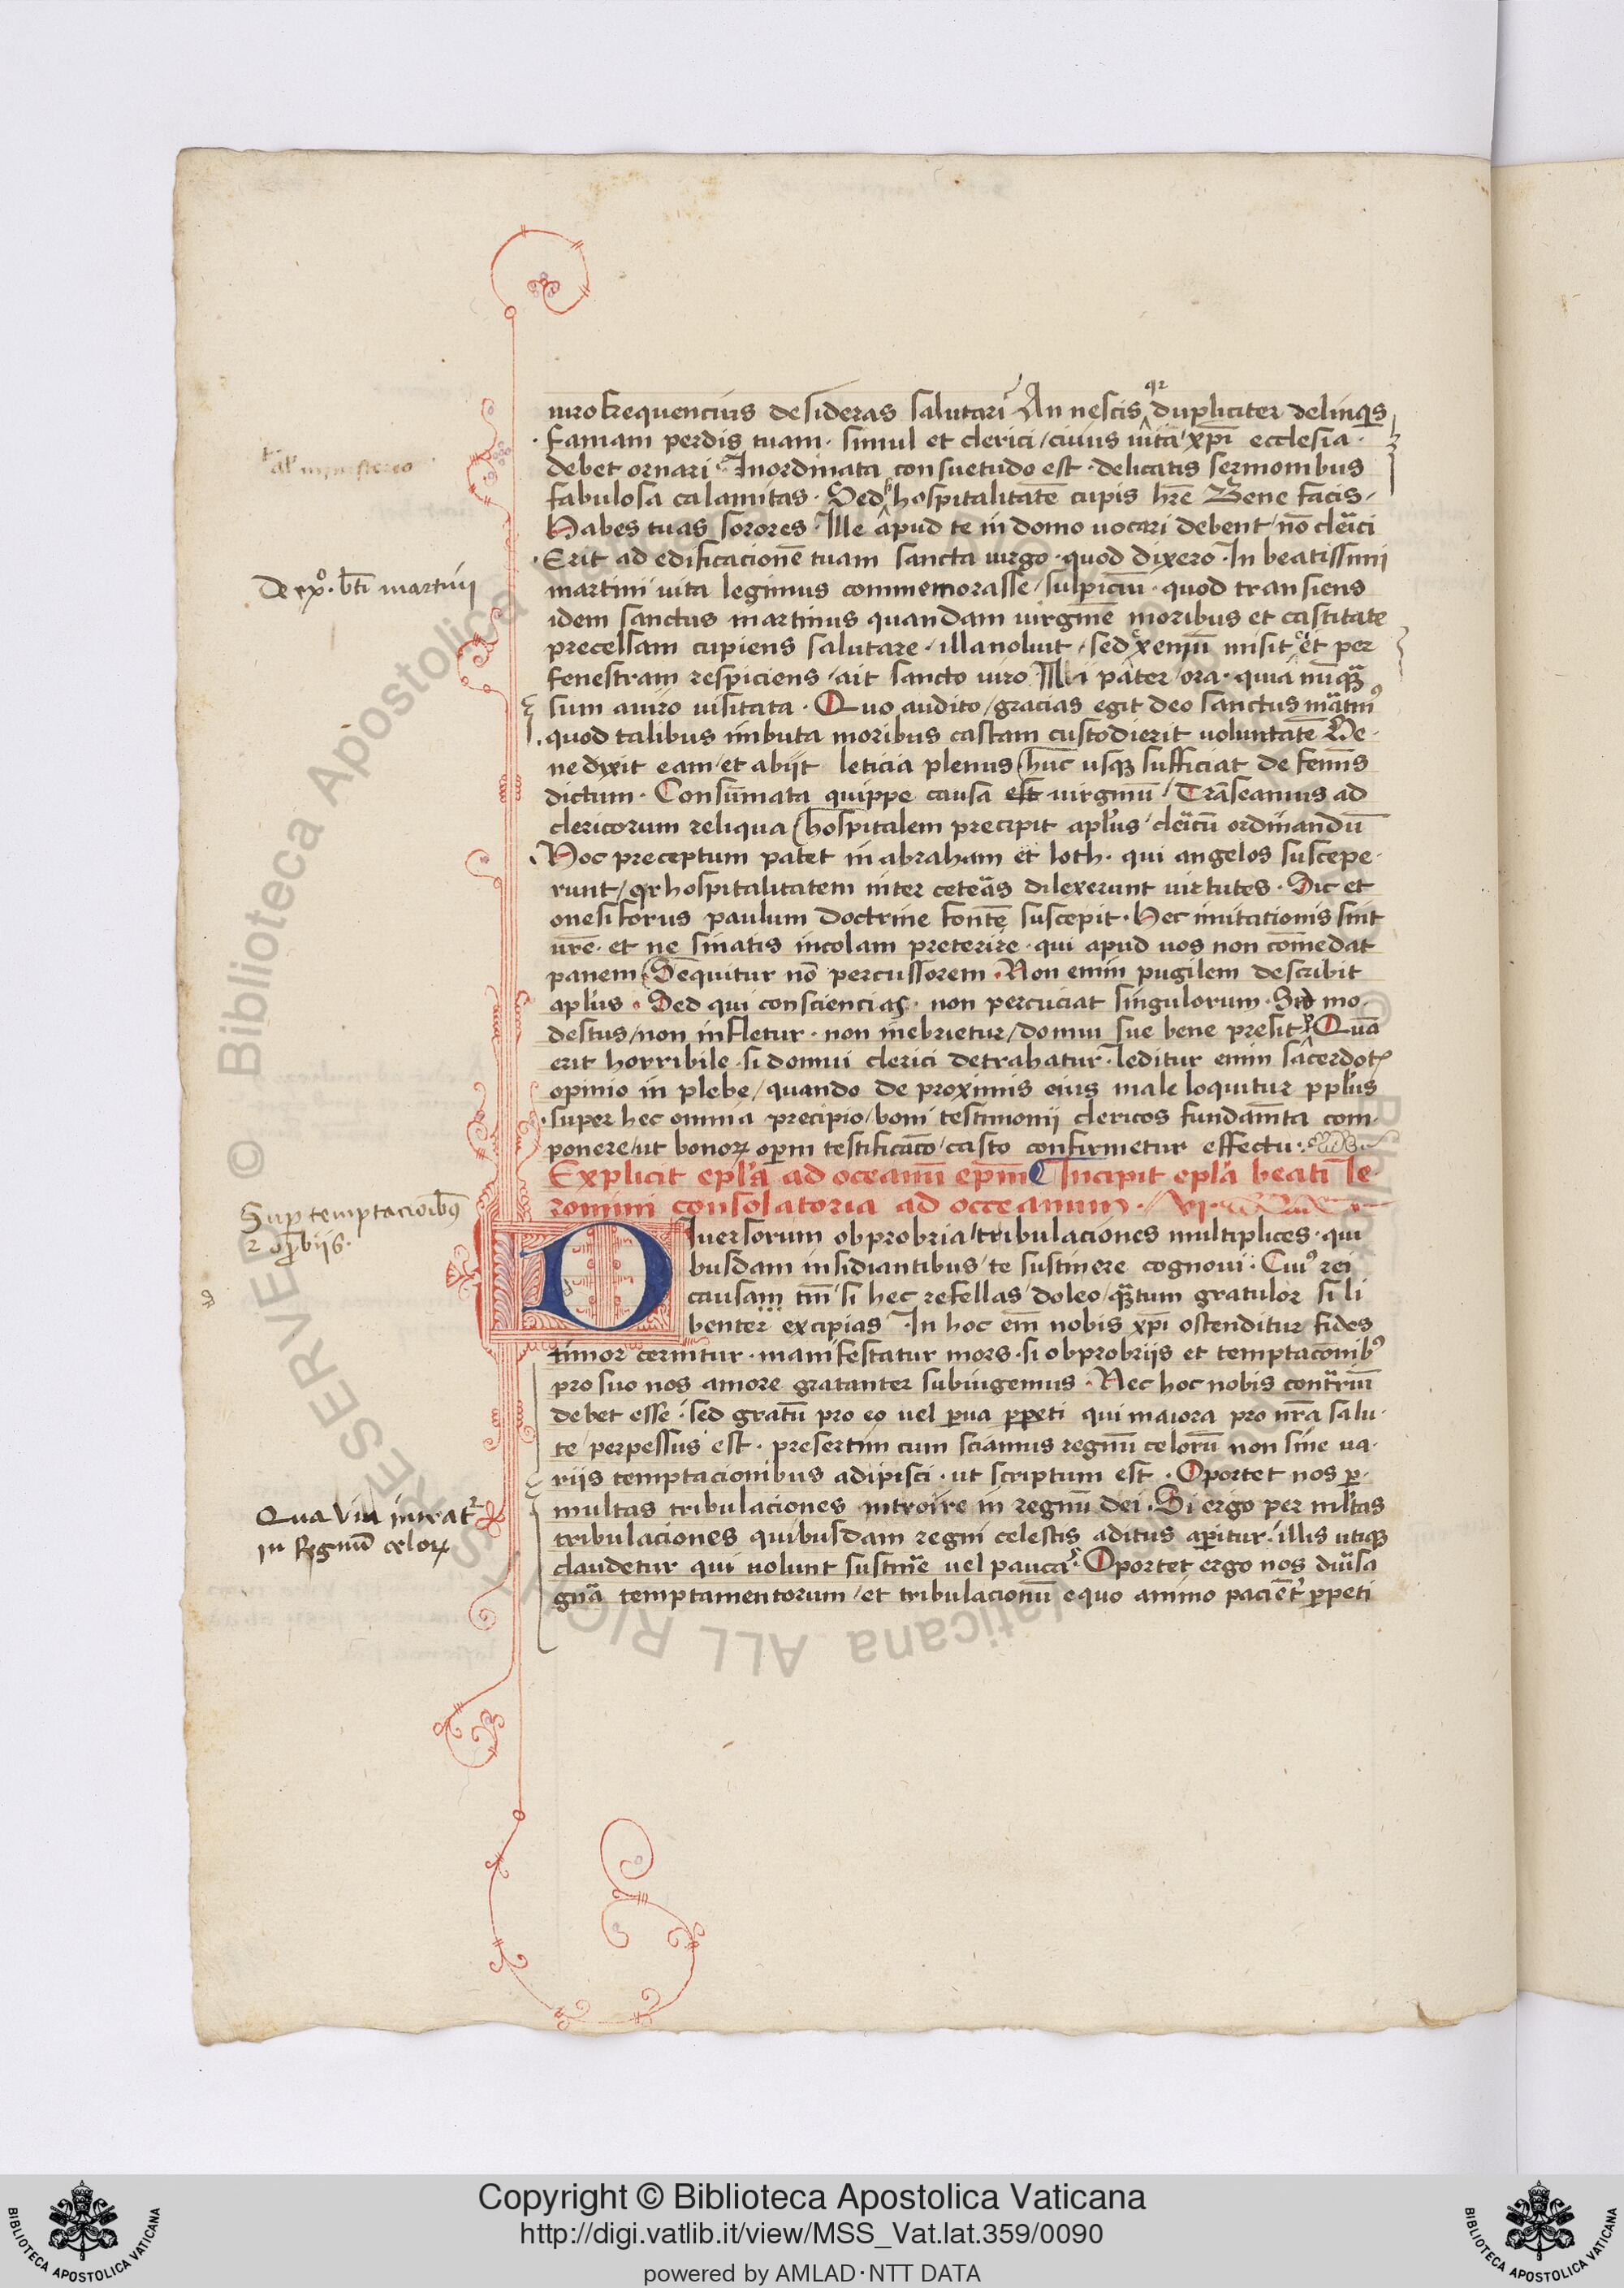 uiro frequencius desideras salutari An nescis qr dupliciter delinqs
famam perdis tuam · simul et clerici / cuius uitā xp̄i ecclesia ·
debet ornari · Inordinata consuetudo est · delicatis sermonibus
fabulosa calamitas · Sed hospitalitatē cupis hr̄e Bene facis /
Habes tuas sorores · Ille apud te in domo uocari debent / nō cl̄ici
Erit ad edificacionē tuam sancta uirgo · quod dixero · In beatissimi
De ex̊o · bt̄i martinj
martini uita legimus commemorasse / sulpiciū · quod transiens
idem sanctus martinus quandam uirginē moribus et castitate
precelsam cupiens salutare · illa noluit / sed xeniū misit et per
fenestram respiciens / ait sancto uiro pater / ora · quia nūqȝ
sum a uiro uisitata · Quo audito / gracias egit deo sanctus mātin⁹
quod talibus imbuta moribus castam custodierit uoluntatē Be·
nedixit eam / et abijt leticia plenus huc usqȝ sufficiat de femīs
dictum · Consūmata quippe causa est uirginū / Trāseamus ad
clericorum reliqua hospitalem precipit apl'us / cl̄icū ordinandū
Hoc preceptum patet in abraham et loth · qui angelos suscepe·
runt / qr hospitalitatem inter ceteās dilexerunt uirtutes · Sic et
onesiforus paulum doctrine fontē suscepit · Hec imitationis sint
ur̄e · et ne sinatis incolam preterire · qui apud uos non cōmedat
panem Sequitur nō percussorem · Non enim pugilem describit
apl'us · Sed qui consciencias · non percuciat singulorum · Sed mo·
destus / non infletur · non inebrietur / domui sue bene presit Quā
erit horribile · si domui clerici detrahatur · leditur enim sacerdot
opinio in plebe / quando de proximis eius male loquitur ppl'us
super hec omnia precipio / boni testimonii clericos fundam̄ta com·
ponere / ut bonoꝝ opm testificac̄o / casto confirmetur effectu ·
Explicit epl'a ad oceanū ep̄m Incipit epl'a beati Ie·
ronimi consolatoria ad occeanum · vj ·
Sup temptacioibȝ
2 op̄biis ·
Diuersorum obprobria / tribulaciones multiplices · qui
busdam insidiantibus / te sustinere cognoui · Cui⁹ rei
causam tm̄ si hec refellas / doleo / qȝtum gratulor si li
benter excipias In hoc em̄ nobis xp̄i ostenditur fides
timor cernitur · manifestatur mors · si obprobriis et temptac̄onib⁹
pro suo nos amore gratanter subiugemus · Nec hoc nobis contrīū
debet esse · sed gratū pro eo uel pua ppeti qui maiora pro nr̄a salu·
te / perpessus est · presertim cum sciamus regnū celorū non sine ua·
riis temptacionibus adipisci · ut scriptum est · Oportet nos p·
Qua via intrat
in Regnū celoꝝ
multas tribulaciones introire in regnū dei · Si ergo per ml'tas
tribulaciones quibusdam regni celestis aditus apitur · illis utiqȝ
claudetur qui nolunt sustine uel pauca · Oportet ergo nos diūsa
gn̄a temptamentorum / et tribulacionū equo animo pacient ppeti
© Biblioteca Apostolica Vaticana ALL RIGHTS RESERVED
Copyright © Biblioteca Apostolica Vaticana
http://digi.vatlib.it/view/MSS_Vat.lat.359/0090
powered by AMLAD·NTT DATA
BIBLIOTECA APOSTOLICA VATICANA
BIBLIOTECA APOSTOLICA VATICANA